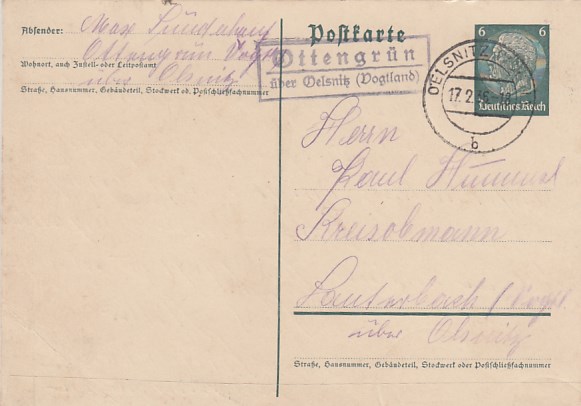 Absender: Max
Ottengrün Vogtl.
Wohnort, auch Zustell- oder Leitpostamt
über Ölsnitz
Straße, Hausnummer, Gebäudeteil, Stockwerk od. Postschließfachnummer
Postkarte
Ottengrün
über Oelsnitz (Vogtland)
6 6
Deutsches Reich
OELSNITZ
17.2.36
b
Herrn
Paul Hummel
Kreisobmann
Lauterbach / Vogtl.
über Ölsnitz
Straße, Hausnummer, Gebäudeteil, Stockwerk oder Postschließfachnummer